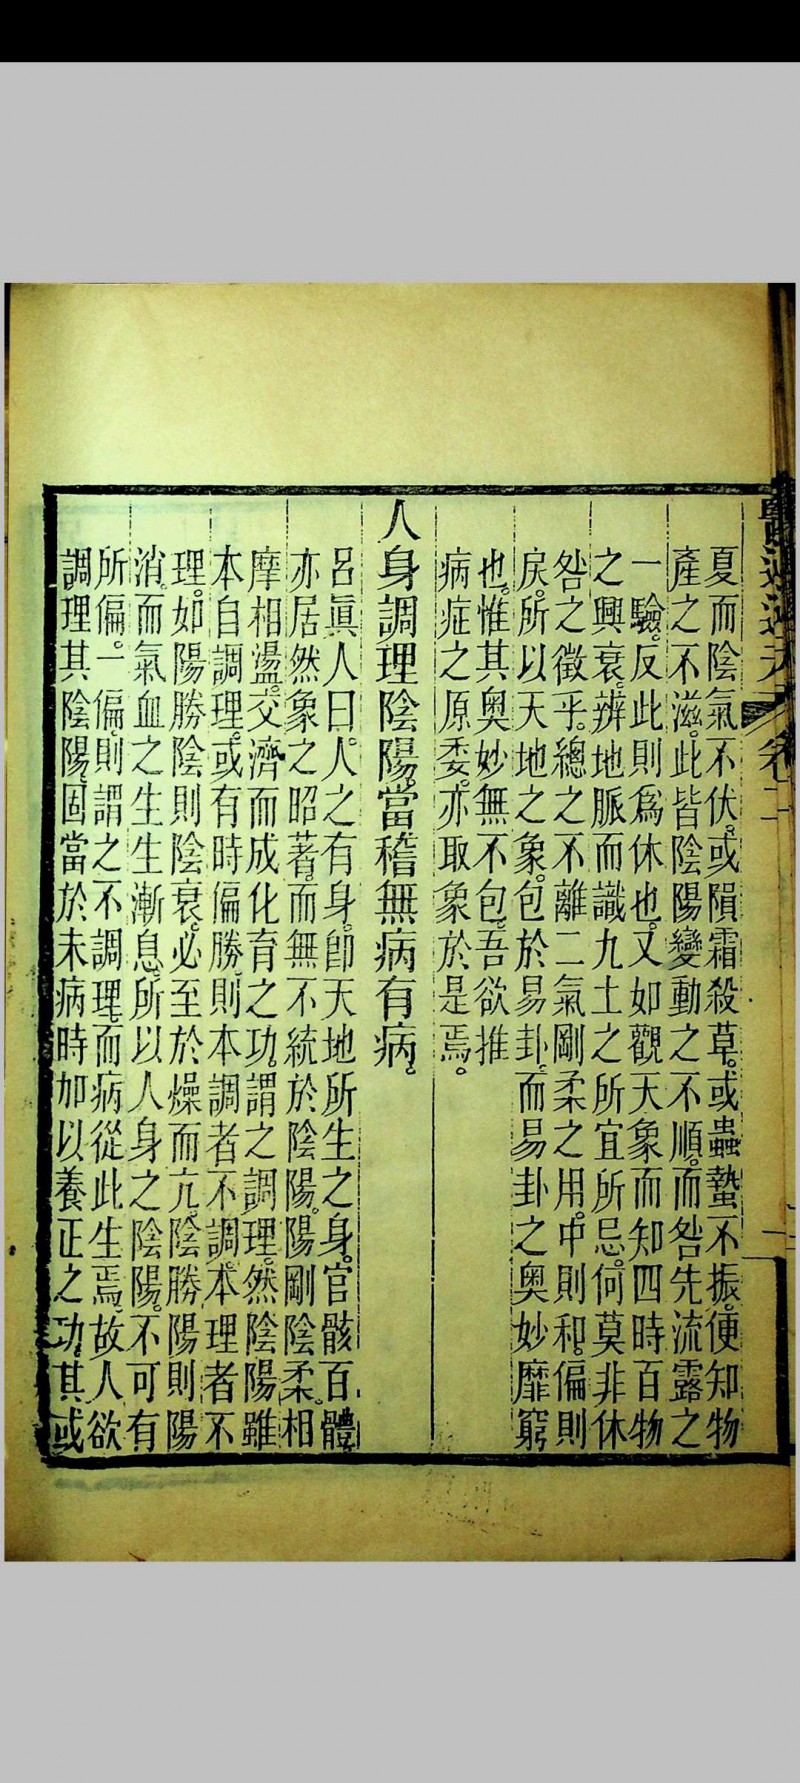 夏而陰氣不伏。或隕霜殺草。或蟲蟄不振。便知物
產之不滋。此皆陰陽變動之不順。而咎先流露之
一驗。反此則為休也。又如觀天象而知四時百物
之興衰。辨地脈而識九土之所宜所忌。何莫非休
咎之徵乎。總之不離二氣剛柔之用。中則和。偏則
戾。所以天地之象。包於易卦。而易卦之奧妙靡窮
也。惟其奧妙無不包。吾欲推
病症之原委。亦取象於是焉。
人身調理陰陽。當稽無病有病。
呂眞人曰。人之有身。卽天地所生之身。官骸百體
亦居然象之昭著。而無不統於陰陽。陽剛陰柔。相
摩相盪。交濟而成化育之功。謂之調理。然陰陽雖
本自調理。或有時偏勝。則本調者不調。本理者不
理。如陽勝陰則陰衰。必至於燥而亢。陰勝陽則陽
消。而氣血之生生漸息。所以人身之陰陽。不可有
所偏。一偏。則謂之不調理。而病從此生焉。故人欲
調理其陰陽。固當於未病時加以養正之功。其或
卷二